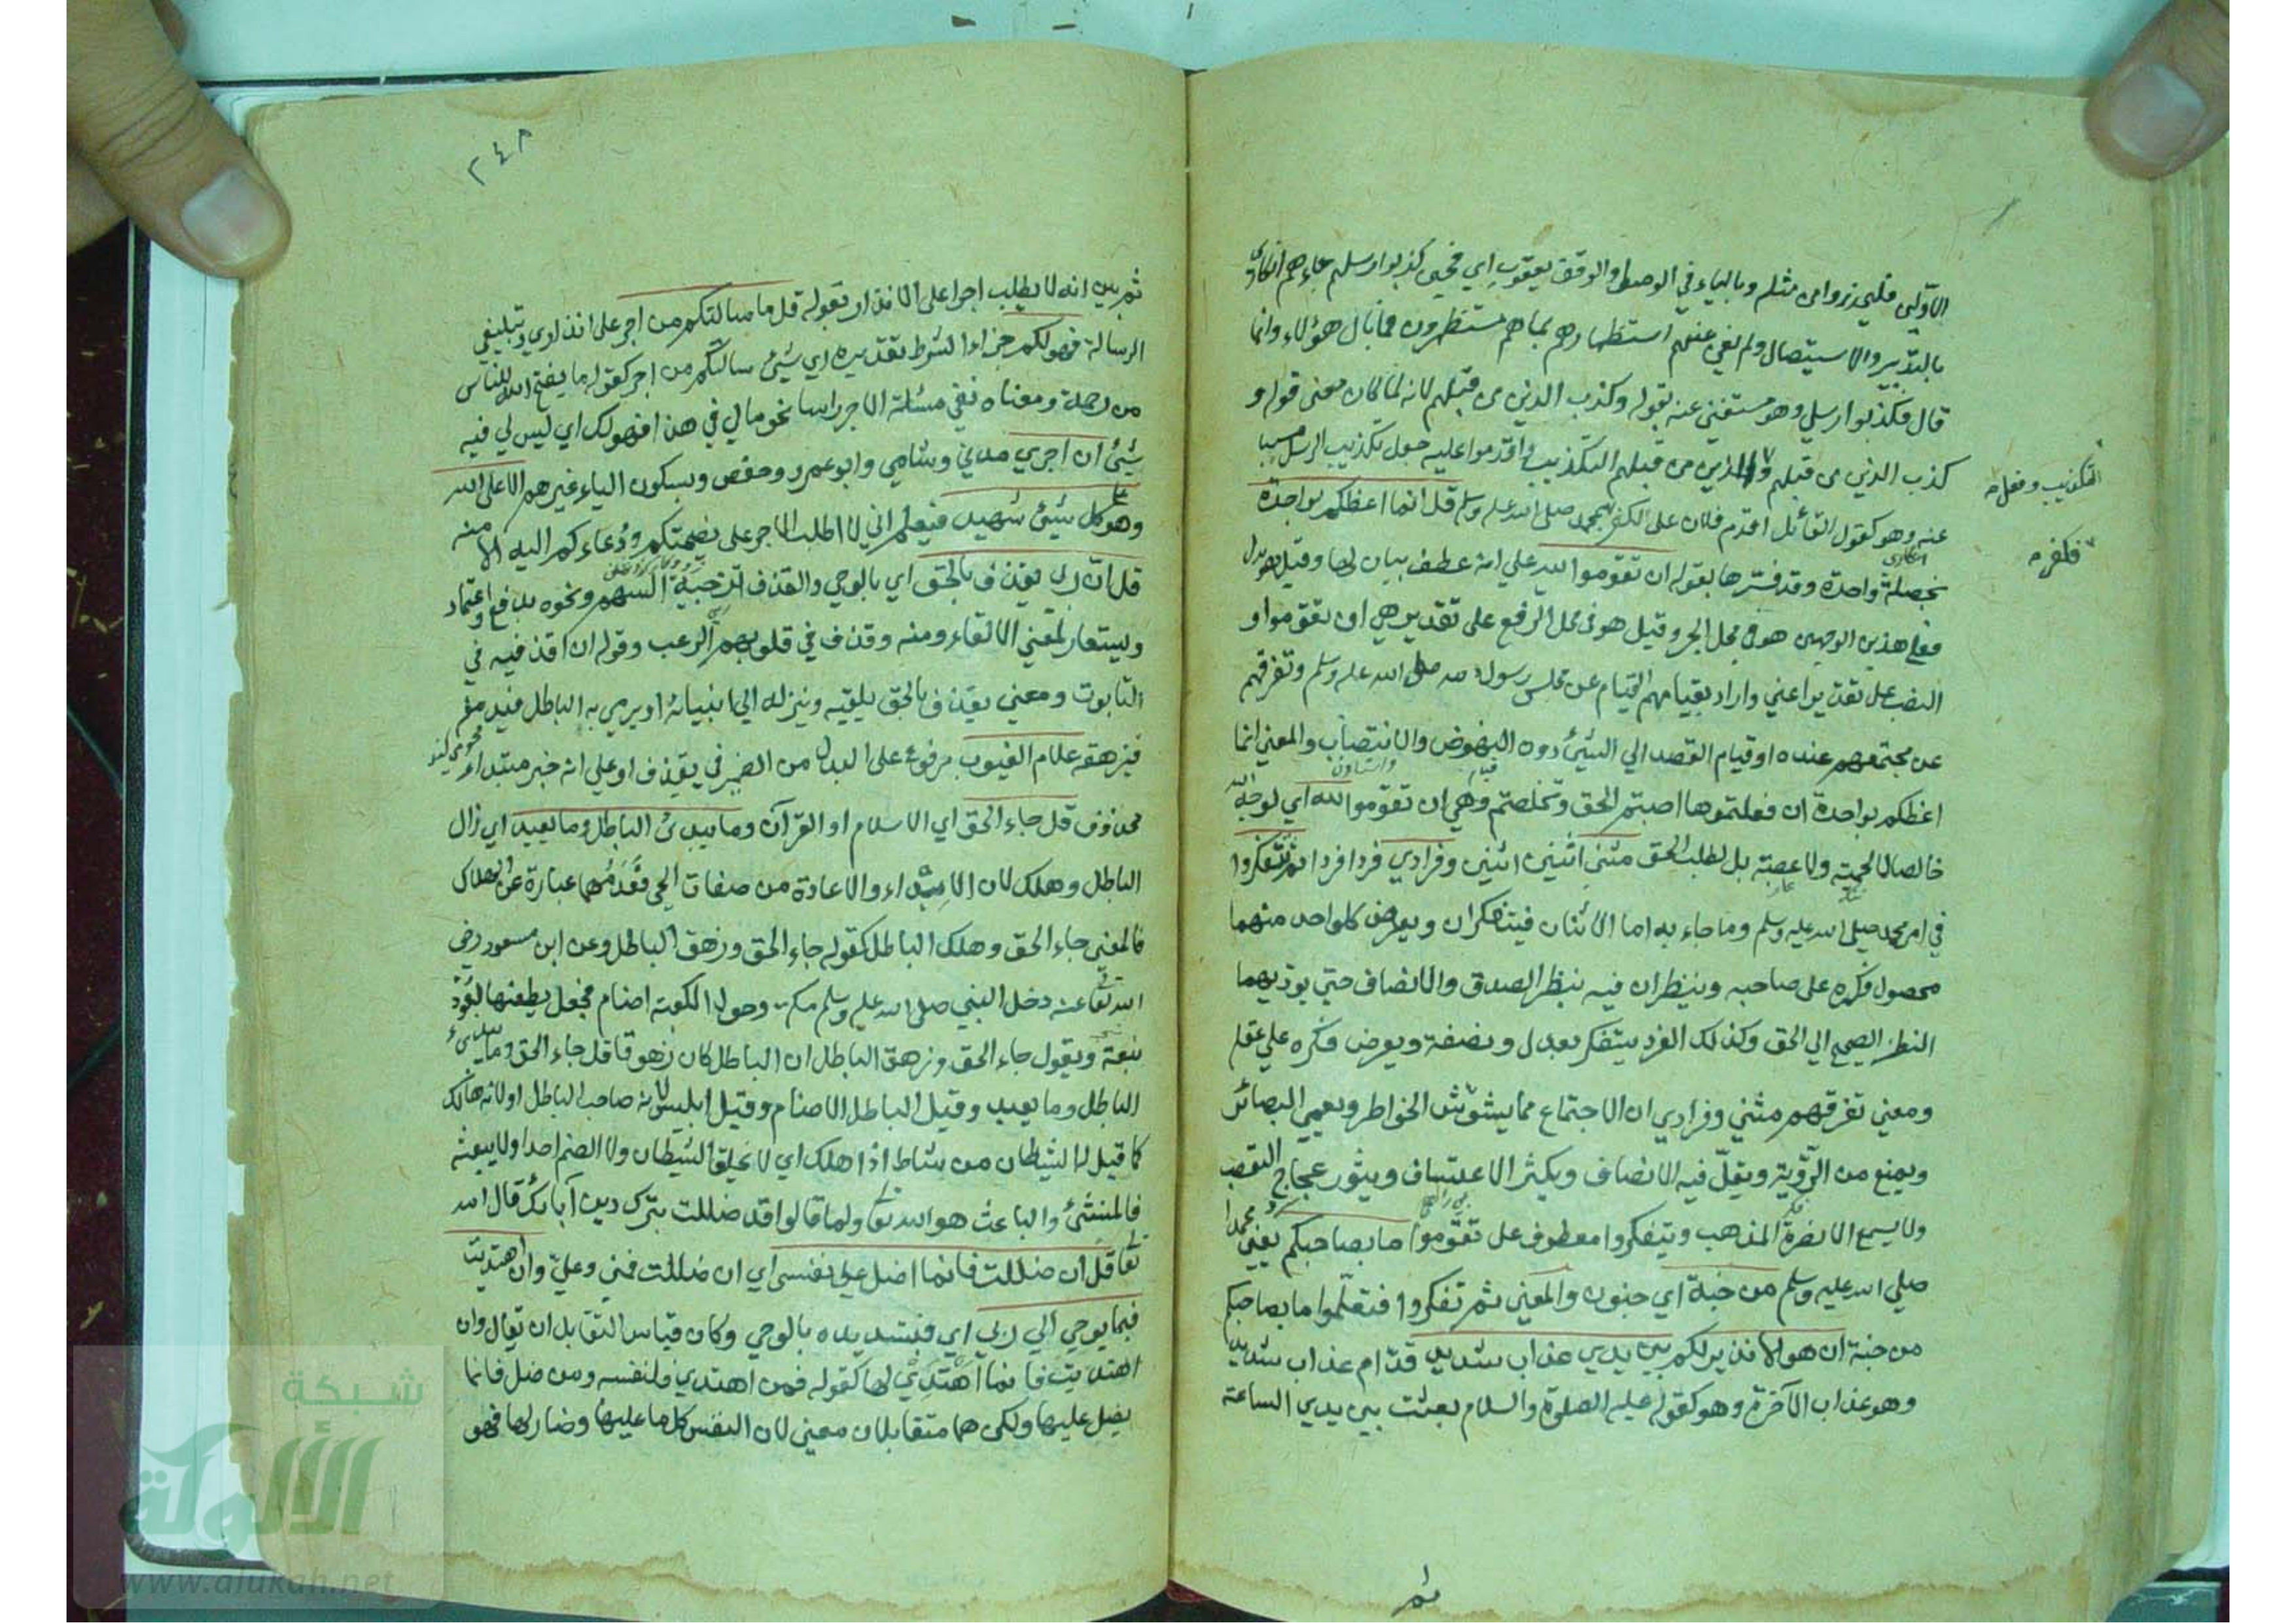 الأولى فليحذروا من مثله وبالياء في الوصل والوقف يعقوب اي فحين كذبوا رسلهم جاءهم انكاري
بالتدمير والاستيصال ولم يغن عنهم استظهارهم بما هم مستظهرون فما بال هؤلاء وانما
قال فكذبوا رسلي وهو مستغني عنه بقوله وكذب الذين من قبلهم لانه لما كان معنى قوله و
كذب الذين من قبلهم والذين من قبلهم التكذيب واقدموا عليه جعل تكذيب الرسل مسببا
التكذيب وفعل
عنه وهو كقول القائل اقدم فلان على الكفر بمحمد صلى الله عليه وسلم قل انما اعظكم بواحدة
فكفر
بخصلة واحدة وقد فسرها بقوله ان تقوموا لله علي انه عطف بيان لها وقيل هو بدل
فعلى هذين الوجهين هو في محل الجر وقيل هو في محل الرفع على تقدير هي ان تقوموا و
النصب على تقدير اعني واراد بقيامهم القيام عن مجلس رسول الله صلى الله عليه وسلم وتفرقهم
عن مجتمعهم عنده او قيام القصد الي الشيئ دون النهوض والانتصاب والمعني انما
اعظكم بواحدة ان فعلتموها اصبتم الحق وتخلصتم وهي ان تقوموا لله اي لوجه الله
خالصا لا لحمية ولا عصبية بل لطلب الحق مثنى اثنين اثنين وفرادي فردا فردا ثم تتفكروا
في امر محمد صلى الله عليه وسلم وما جاء به اما الاثنان فيتفكران ويعرض كل واحد منهما
محصول فكره على صاحبه وينظران فيه نظر الصدق والانصاف حتي يوديهما
النظر الصحيح الي الحق وكذلك الفرد يتفكر بعدل ونصفة ويعرض فكره علي عقله
ومعني تفرقهم مثني وفرادي ان الاجتماع مما يشوش الخواطر ويعمي البصائر
ويمنع من الرؤية ويقل فيه الانصاف ويكثر الاعتساف ويثور عجاج التعصب
ولا يسمع الا نصرة المذهب وتتفكروا معطوف على تقوموا ما بصاحبكم يعني محمدا
صلي الله عليه وسلم من جنة اي جنون والمعني ثم تتفكروا فتعلموا ما بصاحبكم
من جنة ان هو الا نذير لكم بين يدي عذاب شديد قدام عذاب شديد
وهو عذاب الآخرة وهو كقوله عليه الصلوة والسلام بعثت بين يدي الساعة
ثم
٢٤٨
ثم بين انه لا يطلب اجرا على الانذار بقوله قل ما سالتكم من اجر على انذاري وتبليغي
الرسالة فهو لكم جزاء الشرط تقديره اي شيئ سالتكم من اجر كقوله ما يفتح الله للناس
من رحمة ومعناه نفي مسئلة الاجر راسا نحو مالي في هذا فهو لك اي ليس لي فيه
شيئ ان اجري مدني وشامي وابو عمرو وحفص وبسكون الياء غيرهم الا على الله
وهو على كل شيئ شهيد فيعلم اني لا اطلب الاجر على نصيحتكم ودعاءكم اليه الا منه
قل ان ربي يقذف بالحق اي بالوحي والقذف تزجية السهم ونحوه بدفع واعتماد
ويستعار لمعني الالقاء ومنه وقذف في قلوبهم الرعب وقوله ان اقذفيه في
التابوت ومعني يقذف بالحق يلقيه وينزله الي انبيائه او يرمي به الباطل فيدمغه
فيزهقه علام الغيوب مرفوع على البدل من الضمير في يقذف او علي انه خبر مبتداء
محذوف قل جاء الحق اي الاسلام او القرآن وما يبدئ الباطل وما يعيد اي زال
الباطل وهلك لان الابداء والاعادة من صفات الحي فعدمهما عبارة عن الهلاك
فالمعني جاء الحق وهلك الباطل كقوله جاء الحق وزهق الباطل وعن ابن مسعود رضي
الله تعا عنه دخل النبي صلى الله عليه وسلم مكة وحول الكعبة اصنام فجعل يطعنها بعود
نبعة ويقول جاء الحق وزهق الباطل ان الباطل كان زهوقا قل جاء الحق وما يبدئ
الباطل وما يعيد وقيل الباطل الاصنام وقيل ابليس لانه صاحب الباطل او لانه هالك
كما قيل له الشيطان من شاط اذا هلك اي لا يخلق الشيطان ولا الصنم احدا ولا يبعثه
فالمنشئ والباعث هو الله تعا ولما قالوا قد ضللت بترك دين آبائك قال الله
تعا قل ان ضللت فانما اضل على نفسي اي ان ضللت فمني وعلي وان اهتديت
فبما يوحي الي ربي اي فبتسديده بالوحي وكان قياس التقابل ان يقال وان
اهتديت فانما اهتدي لها كقوله فمن اهتدي فلنفسه ومن ضل فانما
يضل عليها ولكن هما متقابلان معني لان النفس كل ما عليها وضار لها فهو
شبكة
الألوكة
www.alukah.net